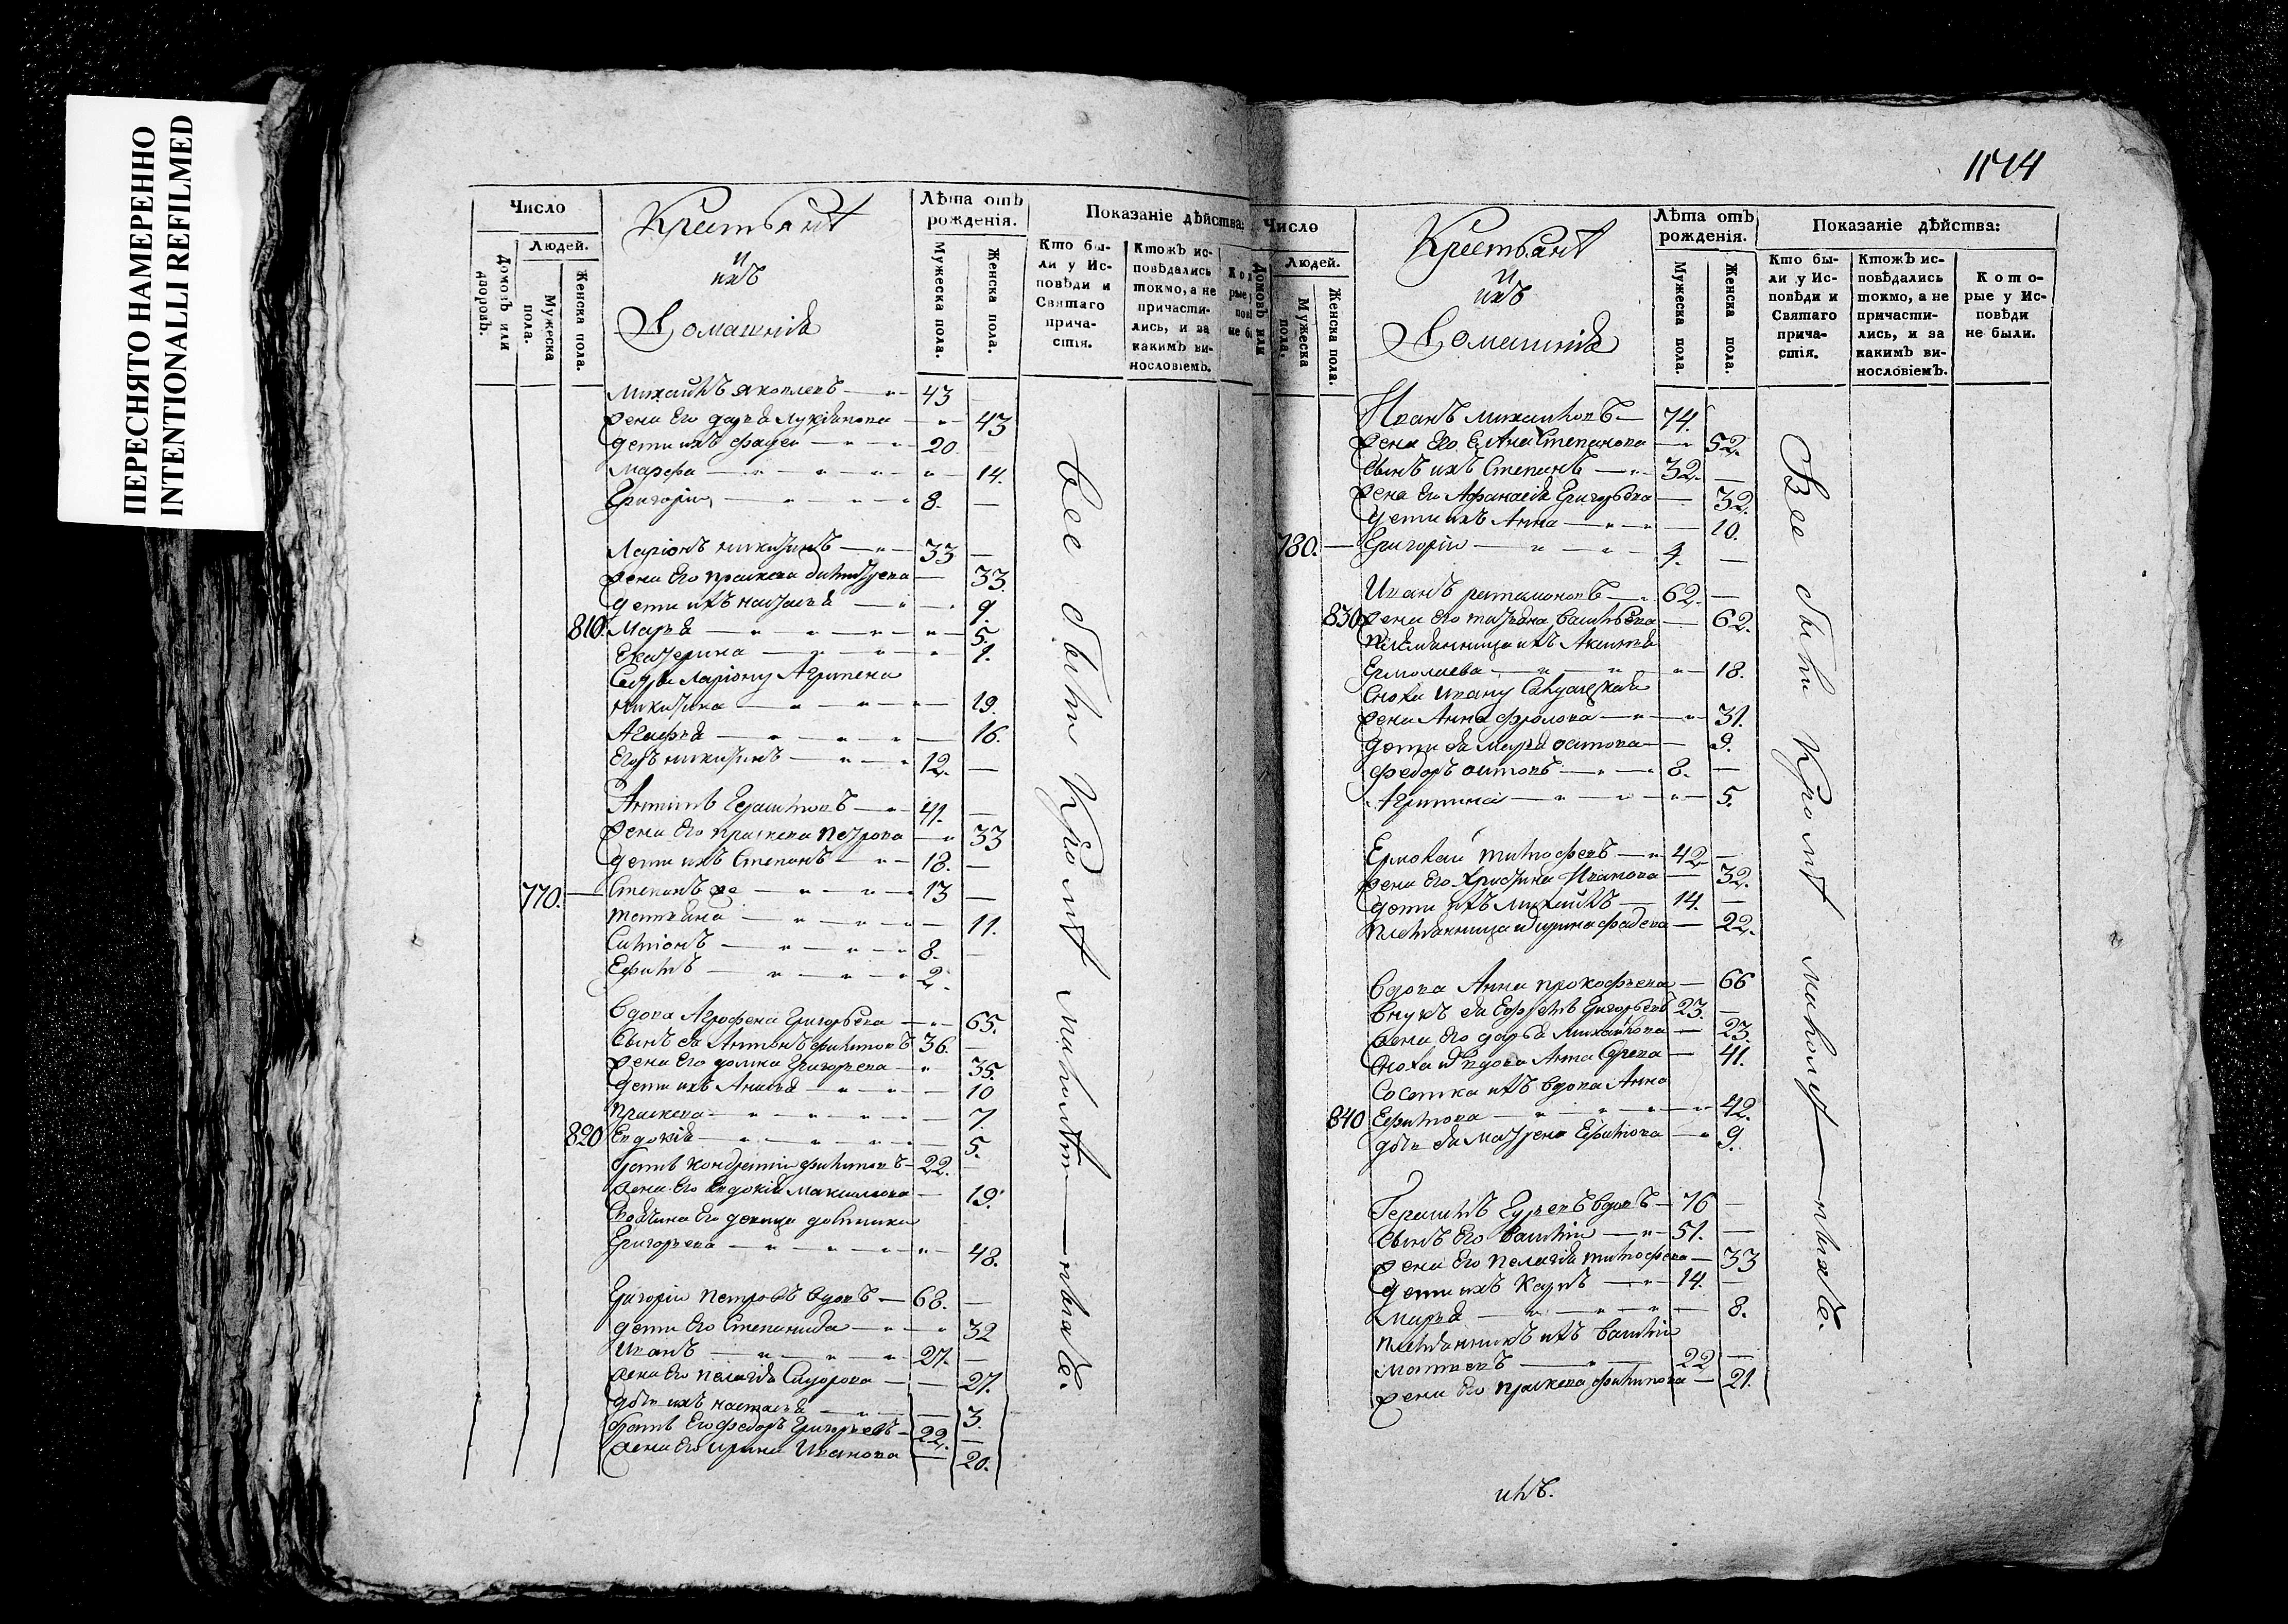 ПЕРЕСНЯТО НАМЕРЕННО
INTENTIONALLI REFILMED
Число
Людей.
Домовъ или дворовъ.
Мужеска пола.
Женска пола.
Крестьянѣ
и
ихъ
Домашнія
Лѣта отъ рожденія.
Мужеска пола.
Женска пола.
Показаніе дѣйства:
Кто были у Исповѣди и Святаго причастія.
Ктожъ исповѣдались токмо, а не причастились, и за какимъ винословіемъ.
Михаилъ Яковлевъ 43
жена его дарья Лукіянова 43
дети ихъ фадей 20
Марфа 14.
Григорій 8.
Ларіонъ никитинъ 33
жена его прасковя димитрева 33.
дети ихъ наталья 9.
810. Марья 5.
Екатерина 1.
Сестра Ларіону Агрипена
никитина 19.
Агафья 16.
Егоръ никитинъ 12.
Антипъ Герасимовъ 41.
жена его прасковя петрова 33
дети ихъ Степанъ 18.
770. Степанъ же 13
татьяна 11.
Симіонъ 8.
Ефимъ 2.
Вдова Агрофена Григорьева 65.
Сынъ ея Антонъ филиповъ 36.
жена его домна Григорьева 35.
дети ихъ Анисья 10
прасковя 7.
820 Евдокія 5.
братъ кондратій филиповъ 22.
жена его Евдокія Максимова 19.
его девица
Григорьева 48.
Григорій петровъ вдовъ 68.
дети его Степанида 32
Иванъ 27.
жена его пелагія Сидорова 27.
дочь ихъ настасья 3
братъ его федоръ Григорьевъ 22.
жена его ирина Иванова 20.
Все были Кромѣ малолѣтн ныхъ.
1174
Число
Людей.
Домовъ или
Мужеска пола.
Женска пола.
Крестьянѣ
и
ихъ
Домашнія
Лѣта отъ рожденія.
Мужеска пола.
Женска пола.
Показаніе дѣйства:
Кто были у Исповѣди и Святаго причастія.
Ктожъ исповѣдались токмо, а не причастились, и за какимъ винословіемъ.
Которые у Исповѣди не были.
Иванъ михаиловъ 74.
жена его Елена Степанова 52.
Сынъ ихъ Степанъ 32.
жена его Афанасія Григорьева 32.
дети ихъ Анна 10.
780. Григорій 4.
Иванъ ратамоновъ 62.
830 жена его татьяна васильева 62.
племянница ихъ Аксинья
Ермолаева 18.
Сноха ивану Салдацкая
жена Анна фролова 31.
дети ея Марья осипова 9.
федоръ осиповъ 8.
Агрипина 5.
Ермолай тимофевъ 42
жена его христина Иванова 32.
дети ихъ михаилъ 14.
племянница ирина фадева 22.
Вдова Анна прокофьева 66
внукъ ея Ефремъ Григорьевъ 23.
жена его дарья михайлова 23.
Сноха вдова Анна 41.
Сосетка ихъ вдова Анна
840 Ефимова 42.
дочь ея матрена Ефимова 9.
Герасимъ Гурьевъ вдовъ 76
Сынъ его василій 51.
жена его пелагія тимофева 33
дети ихъ Карпъ 14.
Марья 8.
племянникъ ихъ василій
матвевъ 22
жена его прасковя филипова 21.
Все были Кромѣ малолѣт ныхъ.
ихъ.